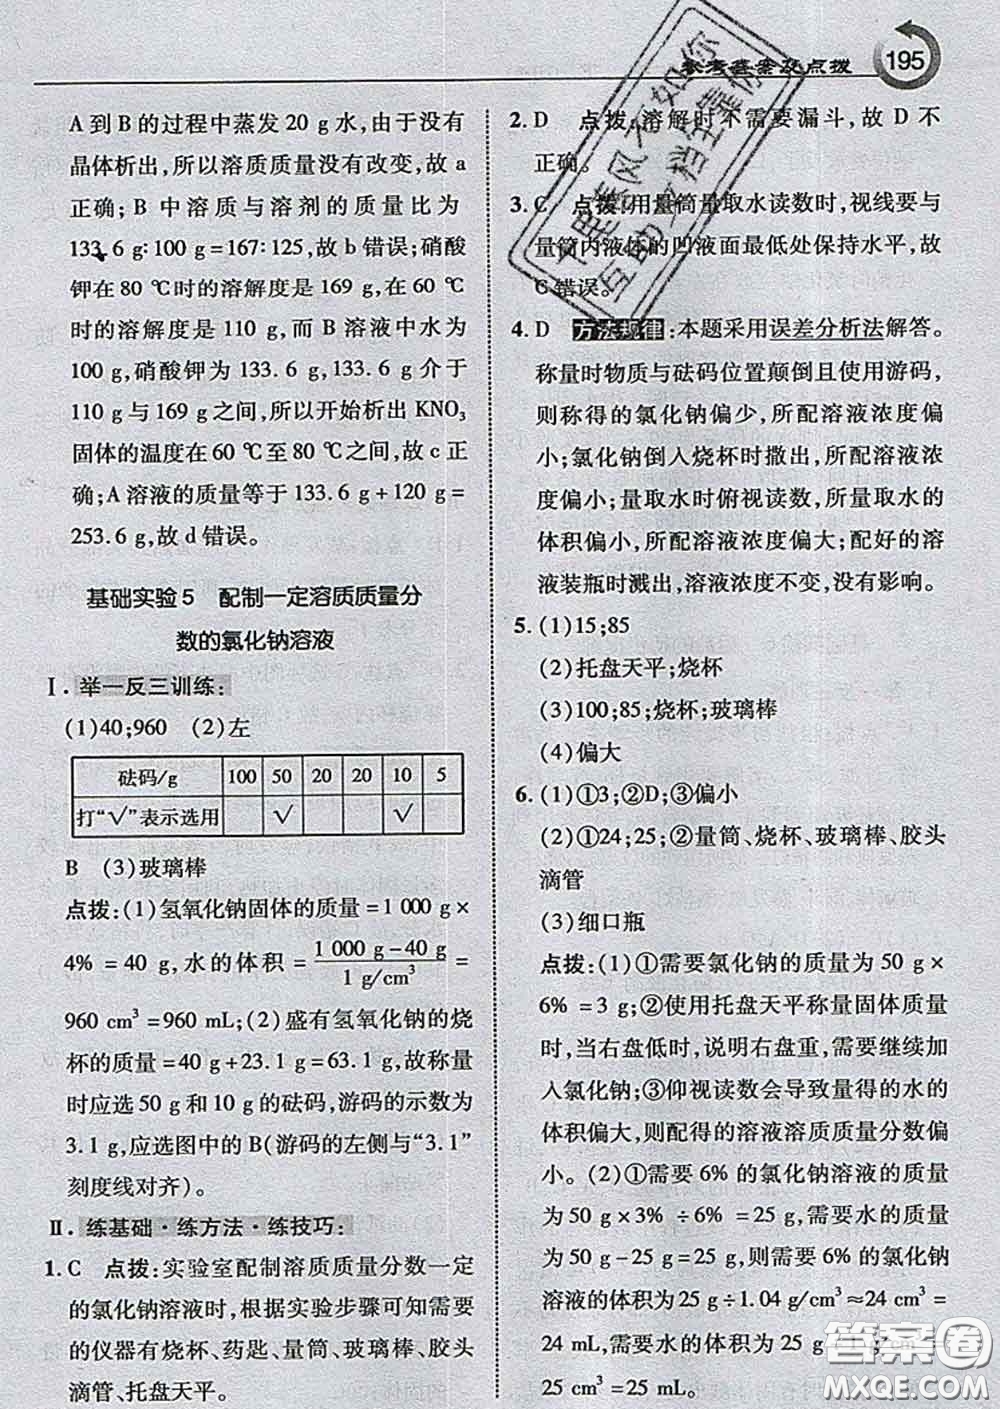 参考答案及点拨 195
A到B的过程中蒸发20 g水,由于没有
晶体析出,所以溶质质量没有改变,故a
正确;B中溶质与溶剂的质量比为
133.6 g∶100 g=167∶125,故b错误;硝酸
钾在80 ℃时的溶解度是169 g,在60 ℃
时的溶解度是110 g,而B溶液中水为
100 g,硝酸钾为133.6 g,133.6 g介于
110 g与169 g之间,所以开始析出KNO₃
固体的温度在60 ℃至80 ℃之间,故c正
确;A溶液的质量等于133.6 g+120 g=
253.6 g,故d错误。
基础实验5 配制一定溶质质量分
数的氯化钠溶液
Ⅰ.举一反三训练:
(1)40;960 (2)左
砝码/g 100 50 20 20 10 5
打“√”表示选用 √ √
B (3)玻璃棒
点拨:(1)氢氧化钠固体的质量=1 000 g×
4%=40 g,水的体积=(1 000 g-40 g)/(1 g/cm³)=
960 cm³=960 mL;(2)盛有氢氧化钠的烧
杯的质量=40 g+23.1 g=63.1 g,故称量
时应选50 g和10 g的砝码,游码的示数为
3.1 g,应选图中的B(游码的左侧与“3.1”
刻度线对齐)。
Ⅱ.练基础·练方法·练技巧:
1. C 点拨:实验室配制溶质质量分数一定
的氯化钠溶液时,根据实验步骤可知需要
的仪器有烧杯、药匙、量筒、玻璃棒、胶头
滴管、托盘天平。
2. D 点拨:溶解时不需要漏斗,故D不
正确。
3. C 点拨:用量筒量取水读数时,视线要与
量筒内液体的凹液面最低处保持水平,故
C错误。
4. D 方法规律:本题采用误差分析法解答。
称量时物质与砝码位置颠倒且使用游码,
则称得的氯化钠偏少,所配溶液浓度偏
小;氯化钠倒入烧杯时撒出,所配溶液浓
度偏小;量取水时俯视读数,所量取水的
体积偏小,所配溶液浓度偏大;配好的溶
液装瓶时溅出,溶液浓度不变,没有影响。
5. (1)15;85
(2)托盘天平;烧杯
(3)100;85;烧杯;玻璃棒
(4)偏大
6. (1)①3;②D;③偏小
(2)①24;25;②量筒、烧杯、玻璃棒、胶头
滴管
(3)细口瓶
点拨:(1)①需要氯化钠的质量为50 g×
6%=3 g;②使用托盘天平称量固体质量
时,当右盘低时,说明右盘重,需要继续加
入氯化钠;③仰视读数会导致量得的水的
体积偏大,则配得的溶液溶质质量分数偏
小。(2)①需要6%的氯化钠溶液的质量
为50 g×3%÷6%=25 g,需要水的质量为
50 g-25 g=25 g,则需要6%的氯化钠
溶液的体积为25 g÷1.04 g/cm³≈24 cm³=
24 mL,需要水的体积为25 g÷1 g/cm³=
25 cm³=25 mL。
答案圈
MXQE.COM